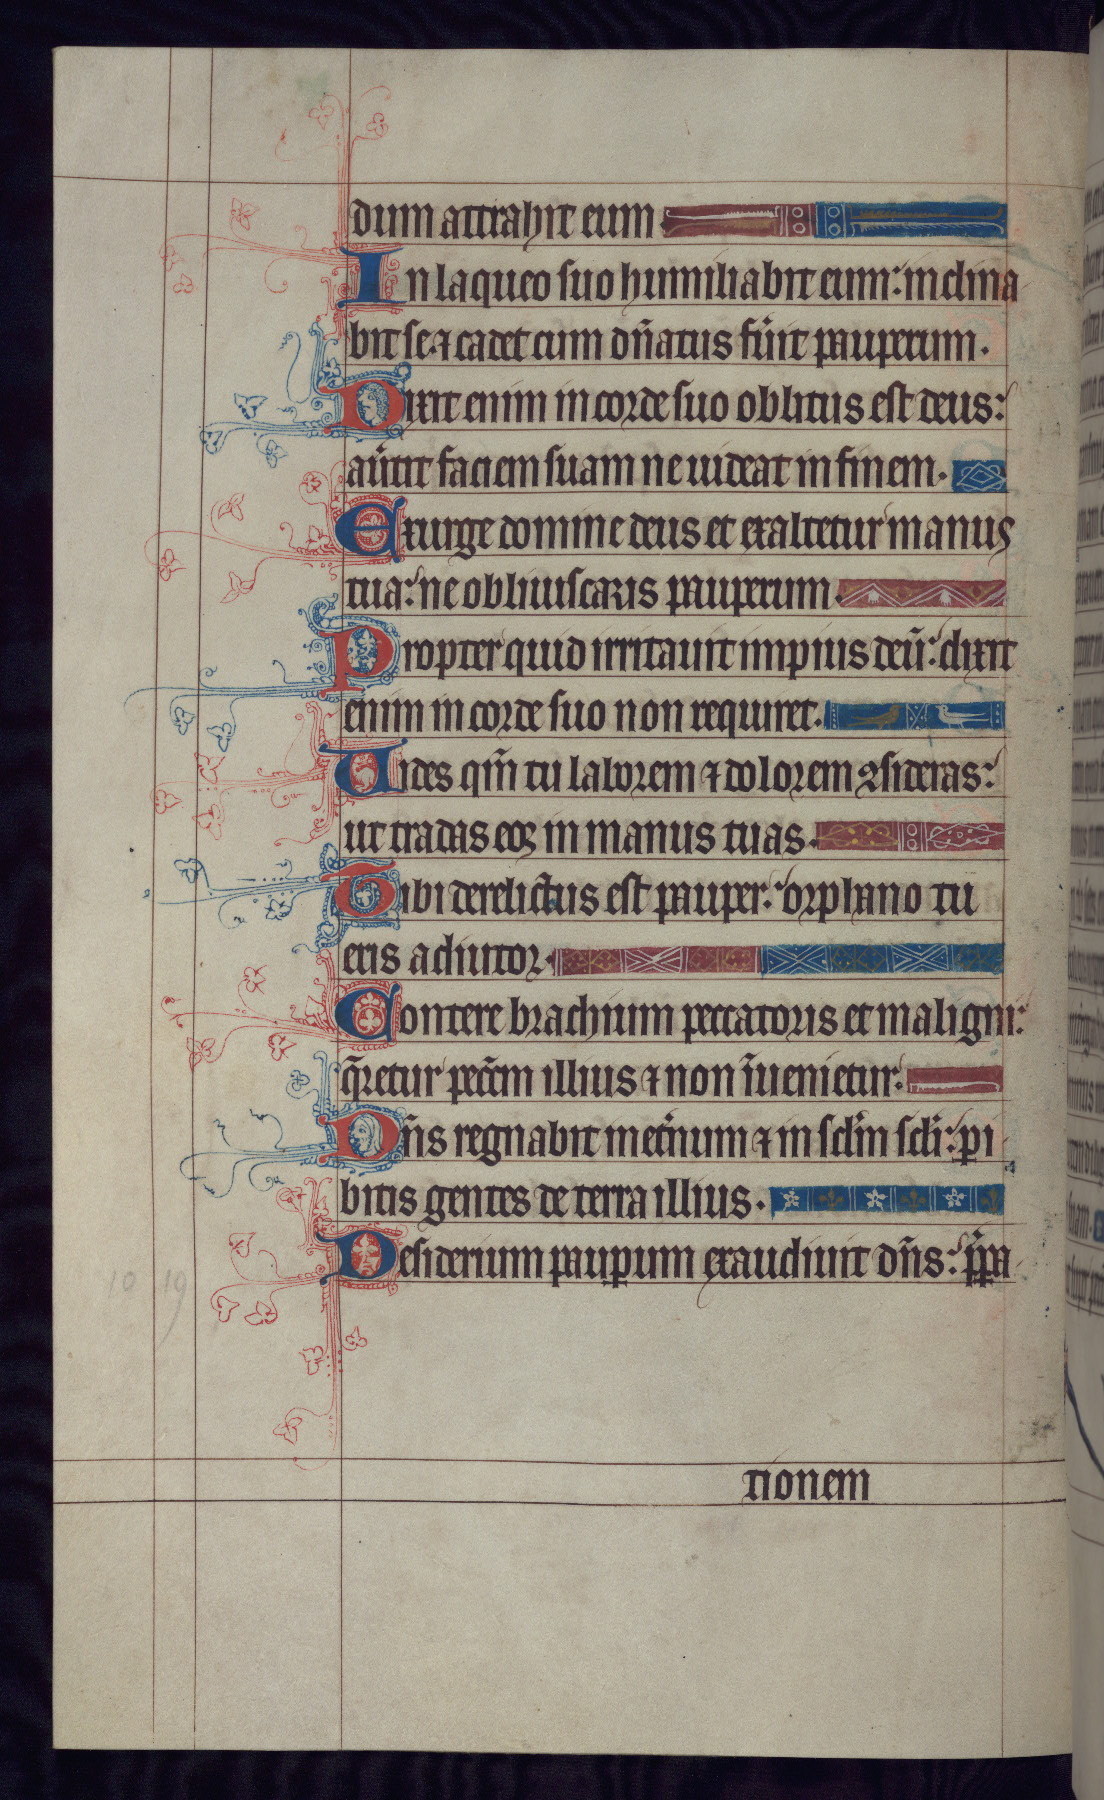 dum attrahit eum
In laqueo suo humiliabit eum: inclina
bit se ⁊ cadet cum dn̄atus fu̾it pauperum.
Dixit enim in corde suo oblitus est deus:
au̾tit faciem suam ne uideat in finem.
Exurge domine deus et exaltetur manus
tua: ne obliuiscaris pauperum.
Propter quid irritauit impius deū: dixit
enim in corde suo non requiret.
Uides qm̄ tu laborem ⁊ dolorem ꝯsideras:
ut tradas eoꝝ in manus tuas.
Tibi derelictus est pauper: orphano tu
eris adiutor.
Contere brachium peccatoris et maligni:
q̄retur pecc̄m illius ⁊ non īuenietur.
Dn̄s regnabit inet̾num ⁊ in scl̄m scl̄i: ꝑi
bitis gentes de terra illius.
Desiderium pauꝑum exaudiuit dn̄s: p̄pa
tionem
10 19